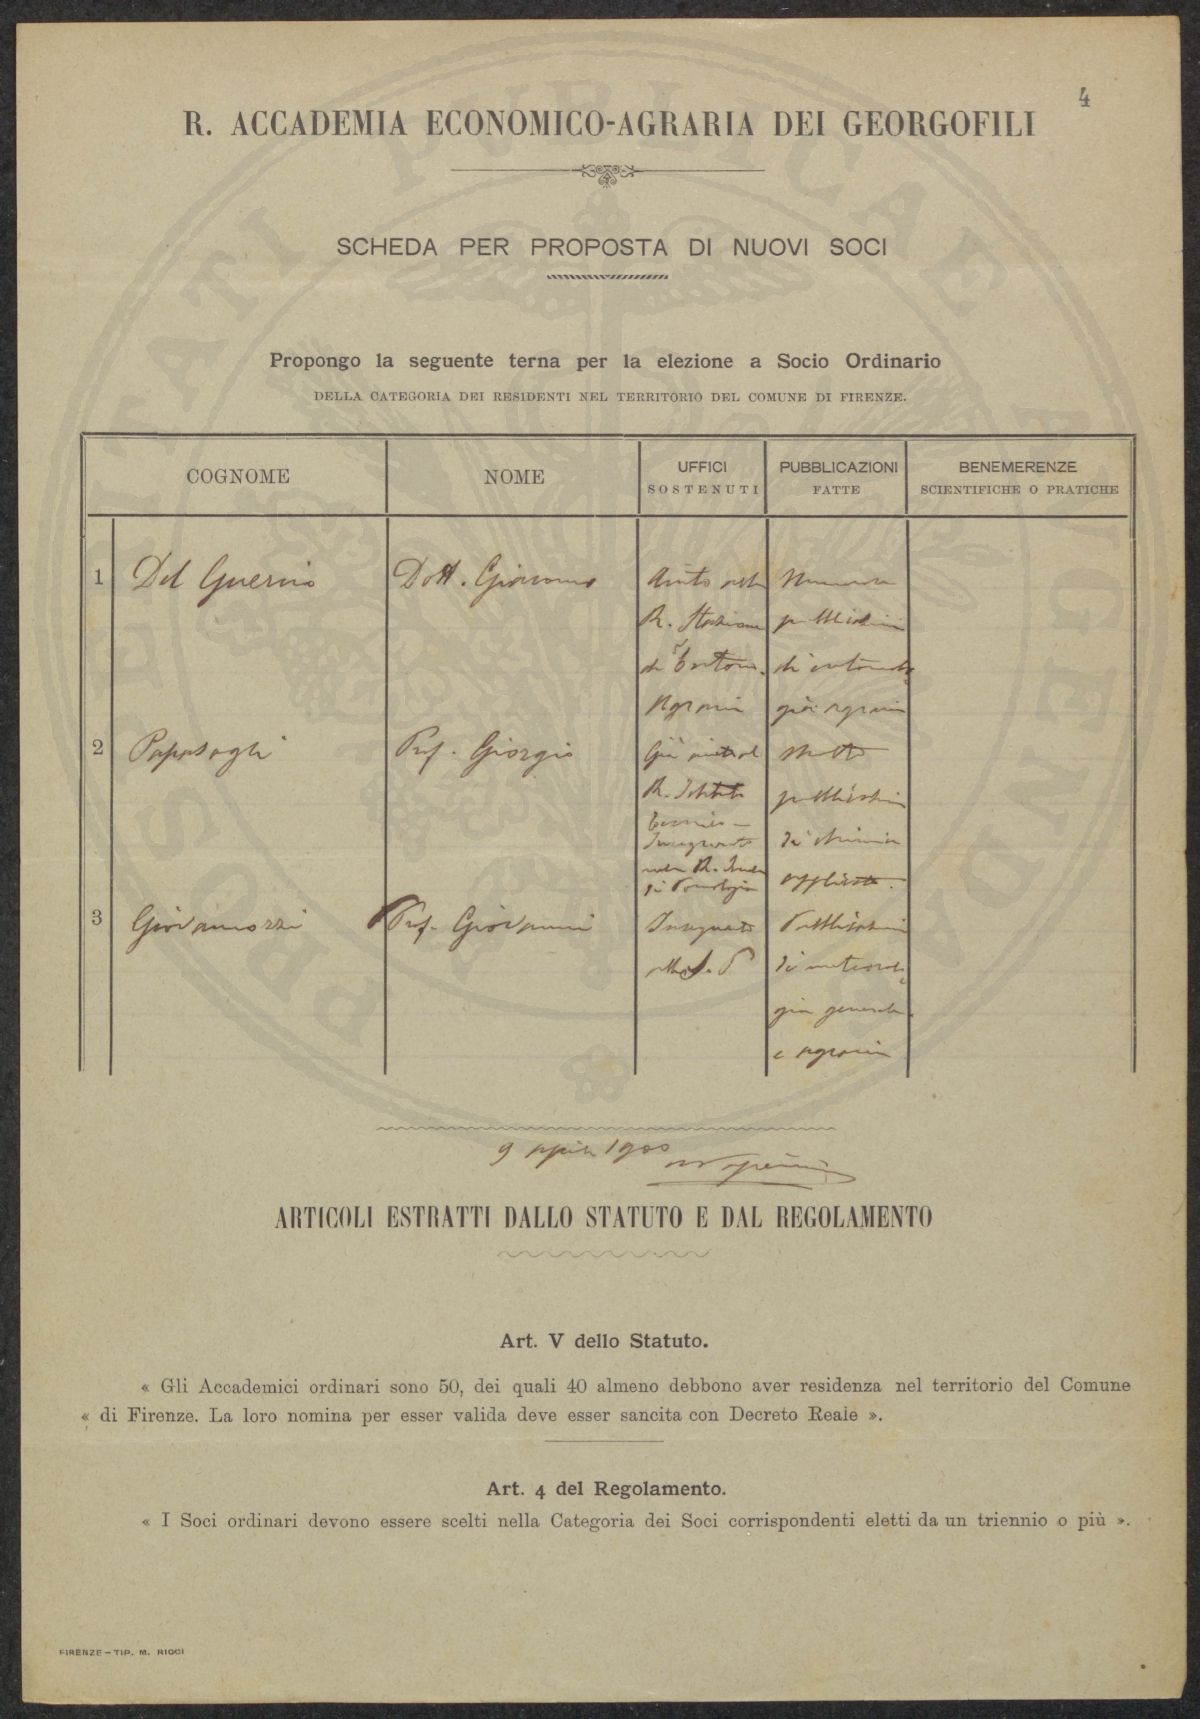 4
R. ACCADEMIA ECONOMICO-AGRARIA DEI GEORGOFILI
SCHEDA PER PROPOSTA DI NUOVI SOCI
Propongo la seguente terna per la elezione a Socio Ordinario
DELLA CATEGORIA DEI RESIDENTI NEL TERRITORIO DEL COMUNE DI FIRENZE.
COGNOME NOME UFFICI SOSTENUTI PUBBLICAZIONI FATTE BENEMERENZE SCIENTIFICHE O PRATICHE
1 Del Guercio Dott. Giacomo
R. Stazione pubblicazioni
di Entom. di entomolo
Agraria gia agraria
2 Papasogli Prof. Giorgio Già molte
R. Istituto pubblicazioni
Tecnico - 
Insegnante di chimica
nella R. Scuola
di Pomologia applicata.
3 Giovannozzi Prof. Giovanni Insegnante Pubblicazioni
di meteorolo
gia generale
e agraria
9 aprile 1900
ARTICOLI ESTRATTI DALLO STATUTO E DAL REGOLAMENTO
Art. V dello Statuto.
« Gli Accademici ordinari sono 50, dei quali 40 almeno debbono aver residenza nel territorio del Comune
« di Firenze. La loro nomina per esser valida deve esser sancita con Decreto Reale ».
Art. 4 del Regolamento.
« I Soci ordinari devono essere scelti nella Categoria dei Soci corrispondenti eletti da un triennio o più ».
FIRENZE – TIP. M. RICCI
PROSPERITATI PUBLICAE AUGENDAE